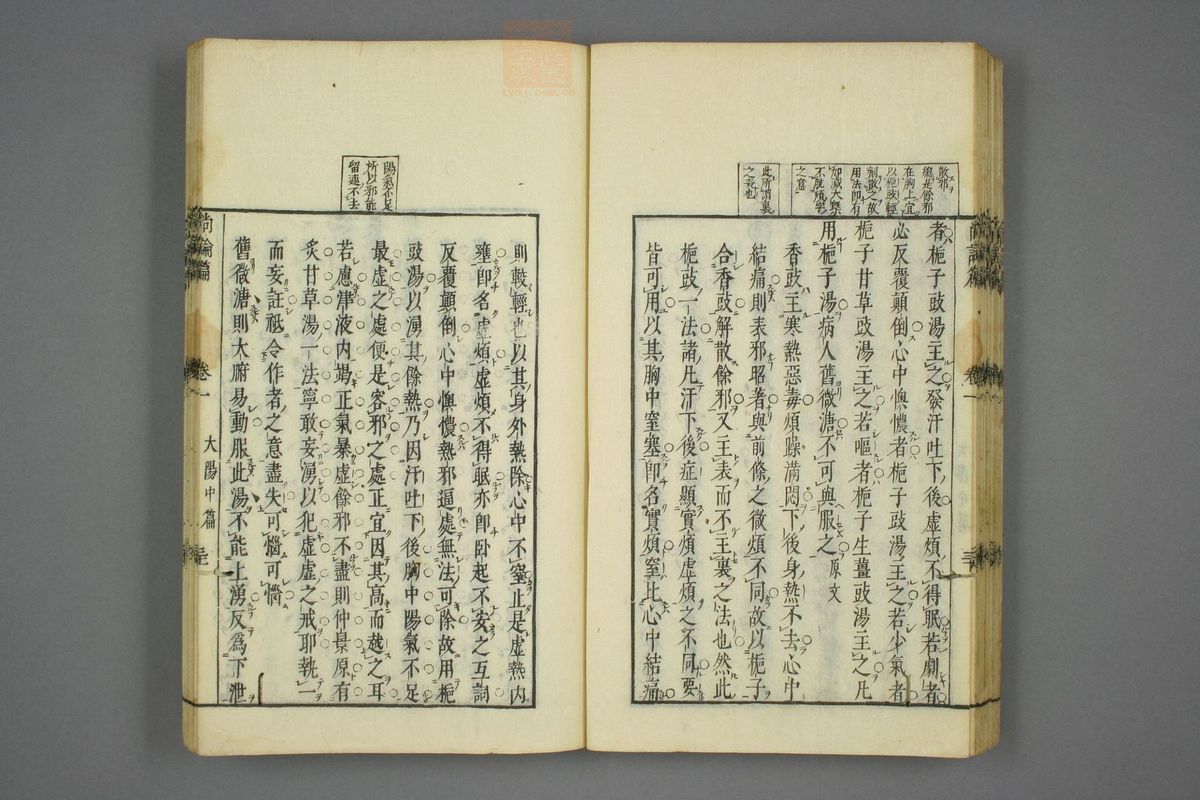 散邪
總是餘邪
在胸上宜
以梔豉輕
劑散之故
用法即有
加減大槩
之意
此所謂裏
之表也
者梔子豉湯主之發汗吐下後虛煩不得眠若劇者
必反覆顛倒心中懊憹者梔子豉湯主之若少氣者
梔子甘草豉湯主之若嘔者梔子生薑豉湯主之凡
用梔子湯病人舊微溏不可與服之原文
香豉主寒熱惡毒煩躁滿悶下後身熱不去心中
結痛則表邪昭著與前條之微煩不同故以梔子
合香豉解散餘邪又主表而不主裏之法也然此
梔豉一法諸凡汗下後症顯實煩虛煩之不同要
皆可用以其胸中窒塞即名實煩窒比心中結痛
尚論篇
卷一
陽氣不足
所以邪能
留連不去
則較輕也以其身外熱除心中不窒止是虛熱內
壅即名虛煩虛煩不得眠亦即臥起不安之互詞
反覆顛倒心中懊憹熱邪逼處無法可除故用梔
豉湯以湧其餘熱乃因汗吐下後胸中陽氣不足
最虛之處便是客邪之處正宜因其高而越之耳
若慮津液內竭正氣暴虛餘邪不盡則仲景原有
炙甘草湯一法寧敢妄湧以犯虛虛之戒耶執一
而妄註祇令作者之意盡失可惱可惱
舊微溏則大腑易動服此湯不能上湧反為下泄
尚論篇
卷一
大陽中篇